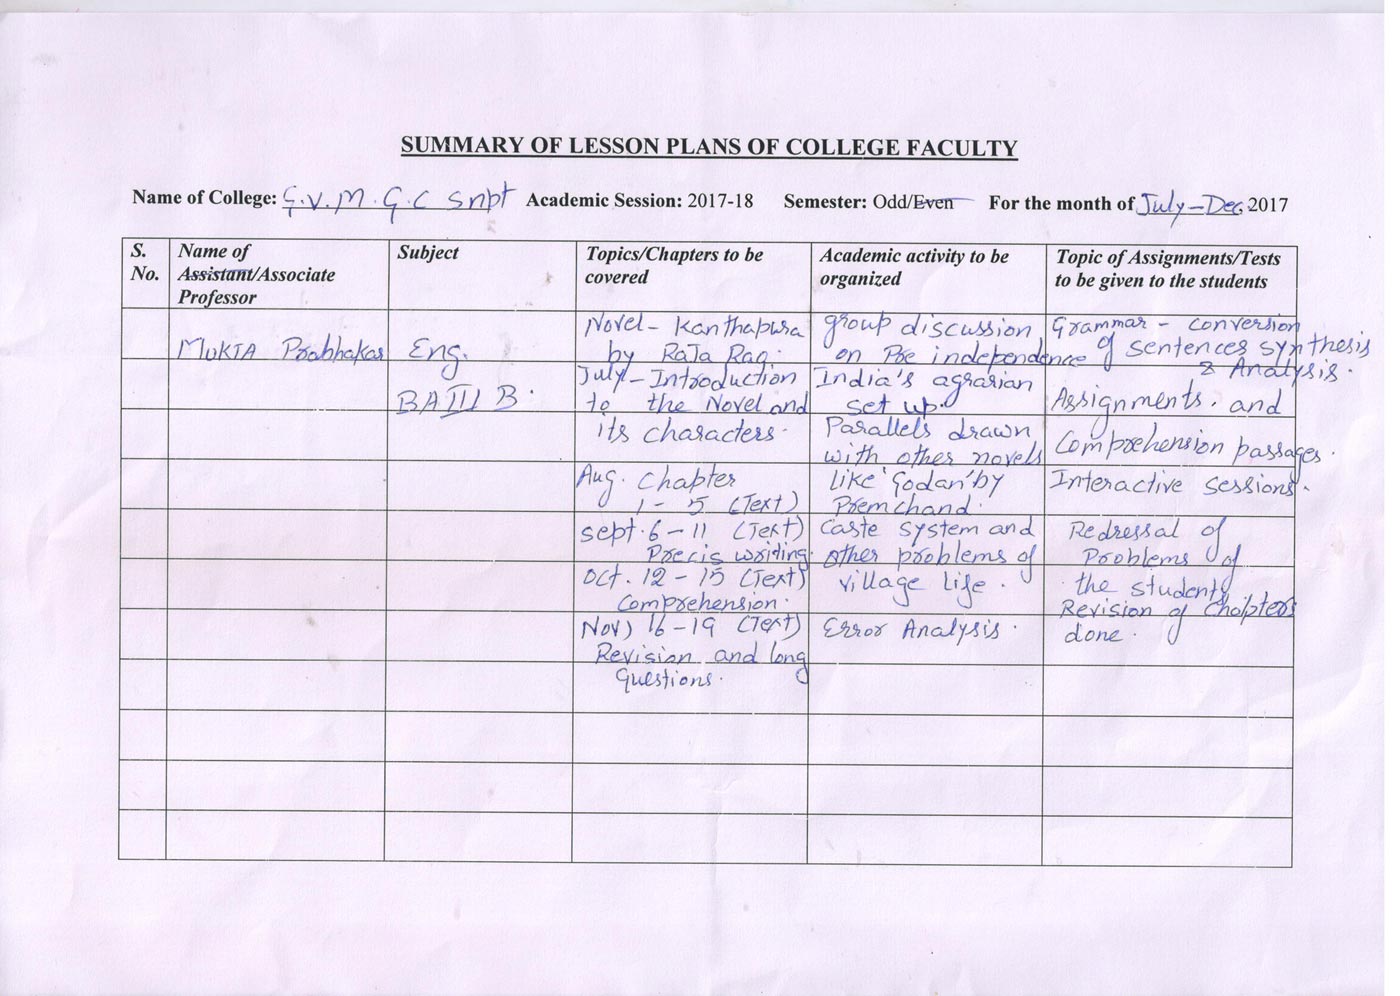 SUMMARY OF LESSON PLANS OF COLLEGE FACULTY
Name of College: G.V.M.G.C Snpt Academic Session: 2017-18 Semester: Odd/Even For the month of July-Dec, 2017
S. No. Name of Assistant/Associate Professor Subject Topics/Chapters to be covered Academic activity to be organized Topic of Assignments/Tests to be given to the students
Mukta Prabhakar
Eng.
BA III B.
Novel- Kanthapura
by Raja Rao.
July- Introduction
to the Novel and
its characters.
Aug. Chapter
1-5 (Text)
Sept. 6-11 (Text)
Precis writing.
Oct. 12-15 (Text)
Comprehension.
Nov) 16-19 (Text)
Revision and long
questions.
group discussion
on Pre independence
India's agrarian
set up.
Parallels drawn
with other novels
like 'Godan' by
Premchand.
Caste system and
other problems of
village life.
Error Analysis.
Grammar - conversion
of sentences synthesis
& Analysis.
Assignments. and
Comprehension passages.
Interactive sessions.
Redressal of
Problems of
the students
Revision of Chapters
done.